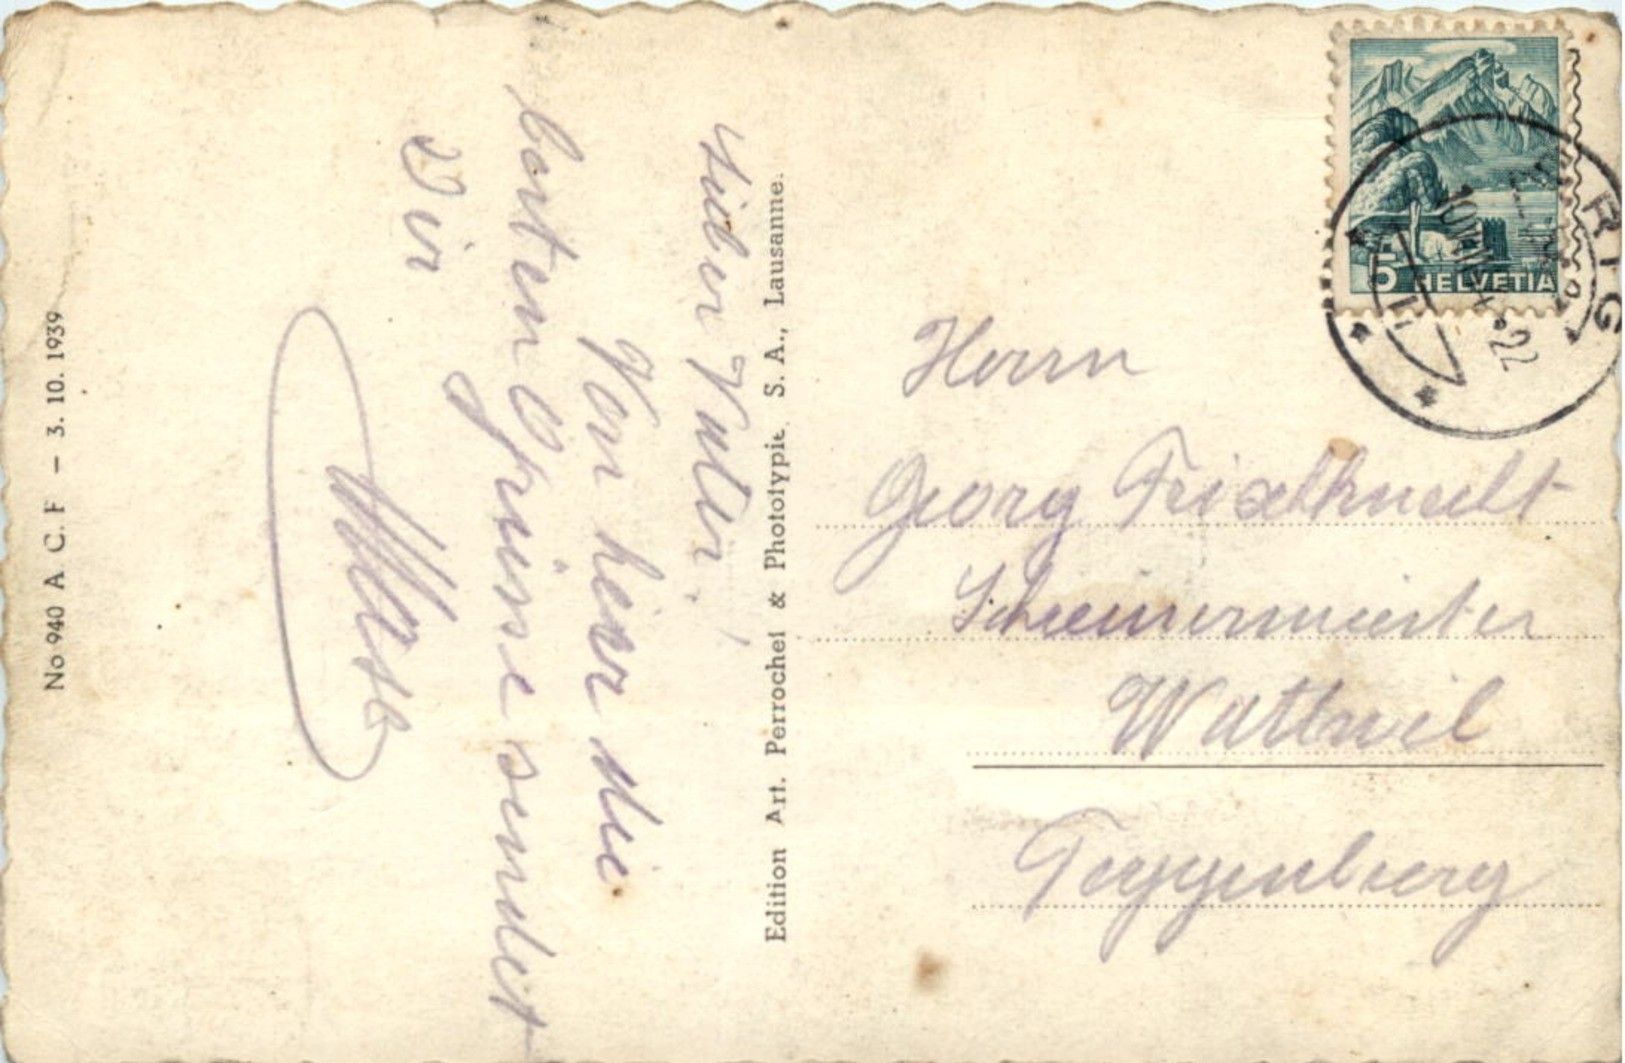 Lieber Vater!
Von hier die
besten Grüsse sendet
Dir
Edition Art. Perrochet & Phototypie, S. A., Lausanne.
No 940 A C. F – 3. 10. 1939
Herrn
Georg Frischknecht
Wattwil
Toggenburg
5 HELVETIA